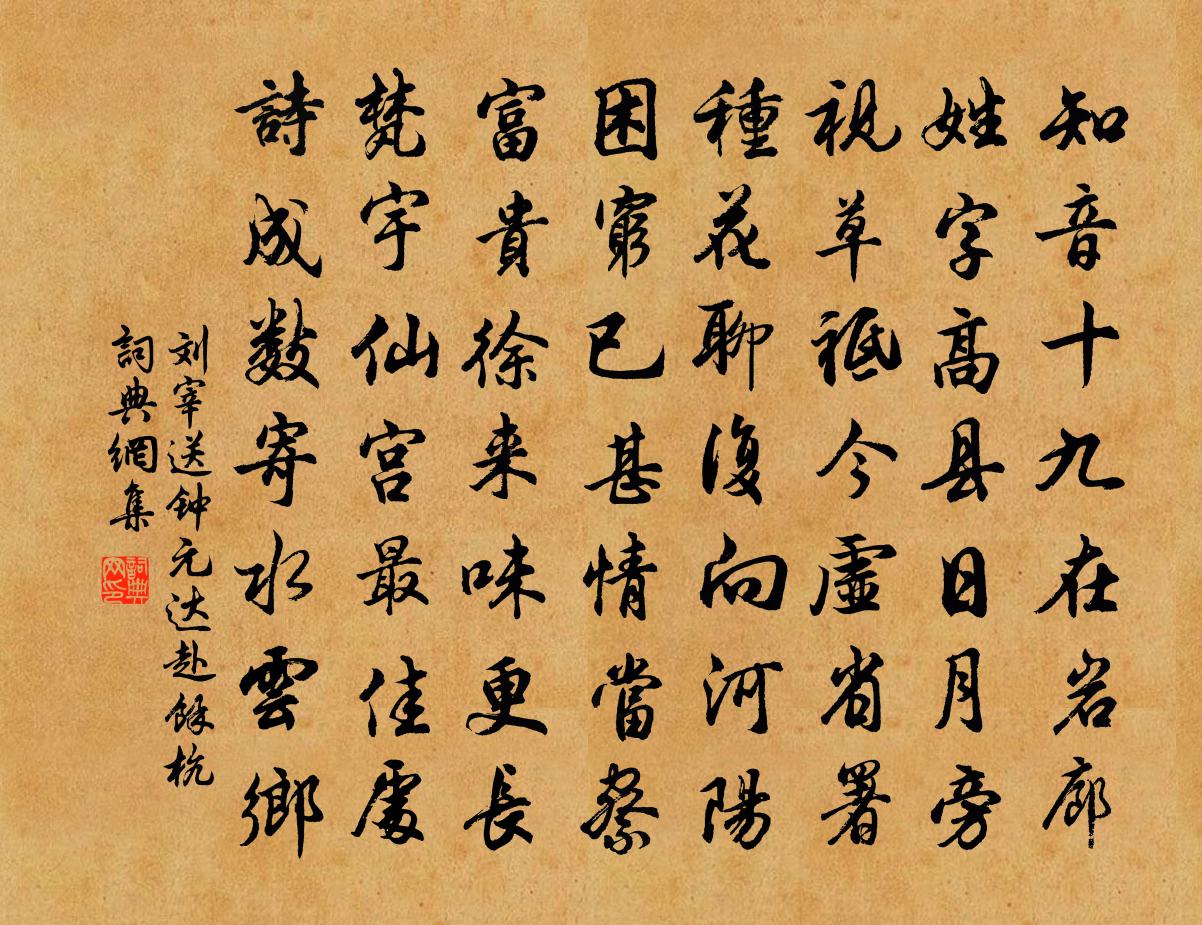 知音十九在岩廊
姓字高县日月旁
視草祗今虛省署
種花聊復向河陽
困窮已甚情當察
富貴徐来味更長
梵宇仙宫最佳處
詩成數寄水雲鄉
刘宰送钟元达赴餘杭
詞典網集
詞典网印